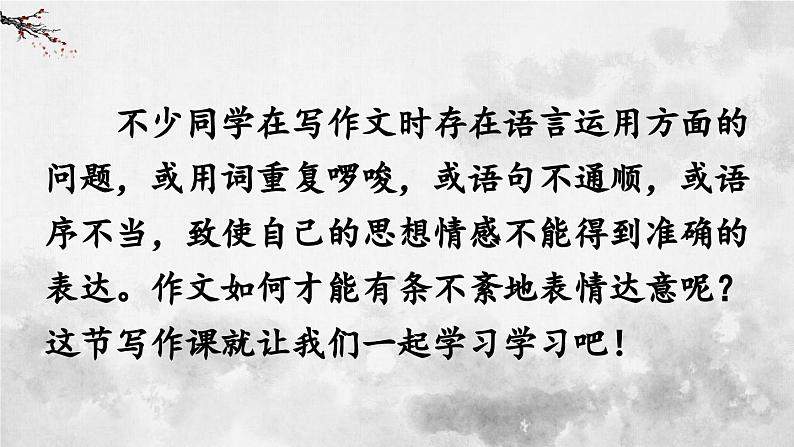 不少同学在写作文时存在语言运用方面的
问题，或用词重复啰唆，或语句不通顺，或语
序不当，致使自己的思想情感不能得到准确的
表达。作文如何才能有条不紊地表情达意呢？
这节写作课就让我们一起学习学习吧！